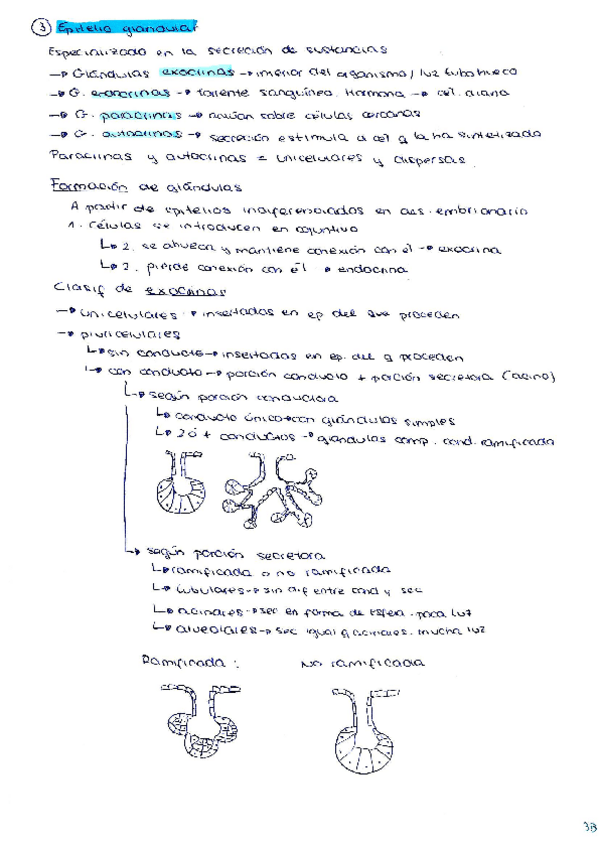 ③ Epitelio glandular
Especializado en la secreción de sustancias
→ Glándulas exocrinas → interior del organismo/ luz tubo hueco
→ G. endocrinas → torrente sanguíneo. Hormona → cél. diana
→ G. paracrinas → actúan sobre células cercanas
→ G. autocrinas → secreción estimula a cél q la ha sintetizado
Paracrinas y autocrinas = unicelulares y dispersas
Formación de glándulas
A partir de epitelios indiferenciados en des. embrionario
1. células se introducen en conjuntivo
↳ 2. se ahueca y mantiene conexión con él → exocrina
↳ 2. pierde conexión con él → endocrina
Clasif de exocrinas
→ unicelulares → insertadas en ep del que proceden
→ pluricelulares
↳ sin conducto → insertadas en ep. del q proceden
↳ con conducto → porción conducto + porción secretora (acino)
↳ según porción conductora
↳ conducto único → con glándulas simples
↳ 2 ó + conductos → glándulas comp. cond. ramificada
↳ según porción secretora
↳ ramificada o no ramificada
↳ tubulares → sin dif entre cond y sec
↳ acinares → sec en forma de esfera. poca luz
↳ alveolares → sec igual q acinares. mucha luz
Ramificada: No ramificada
3B